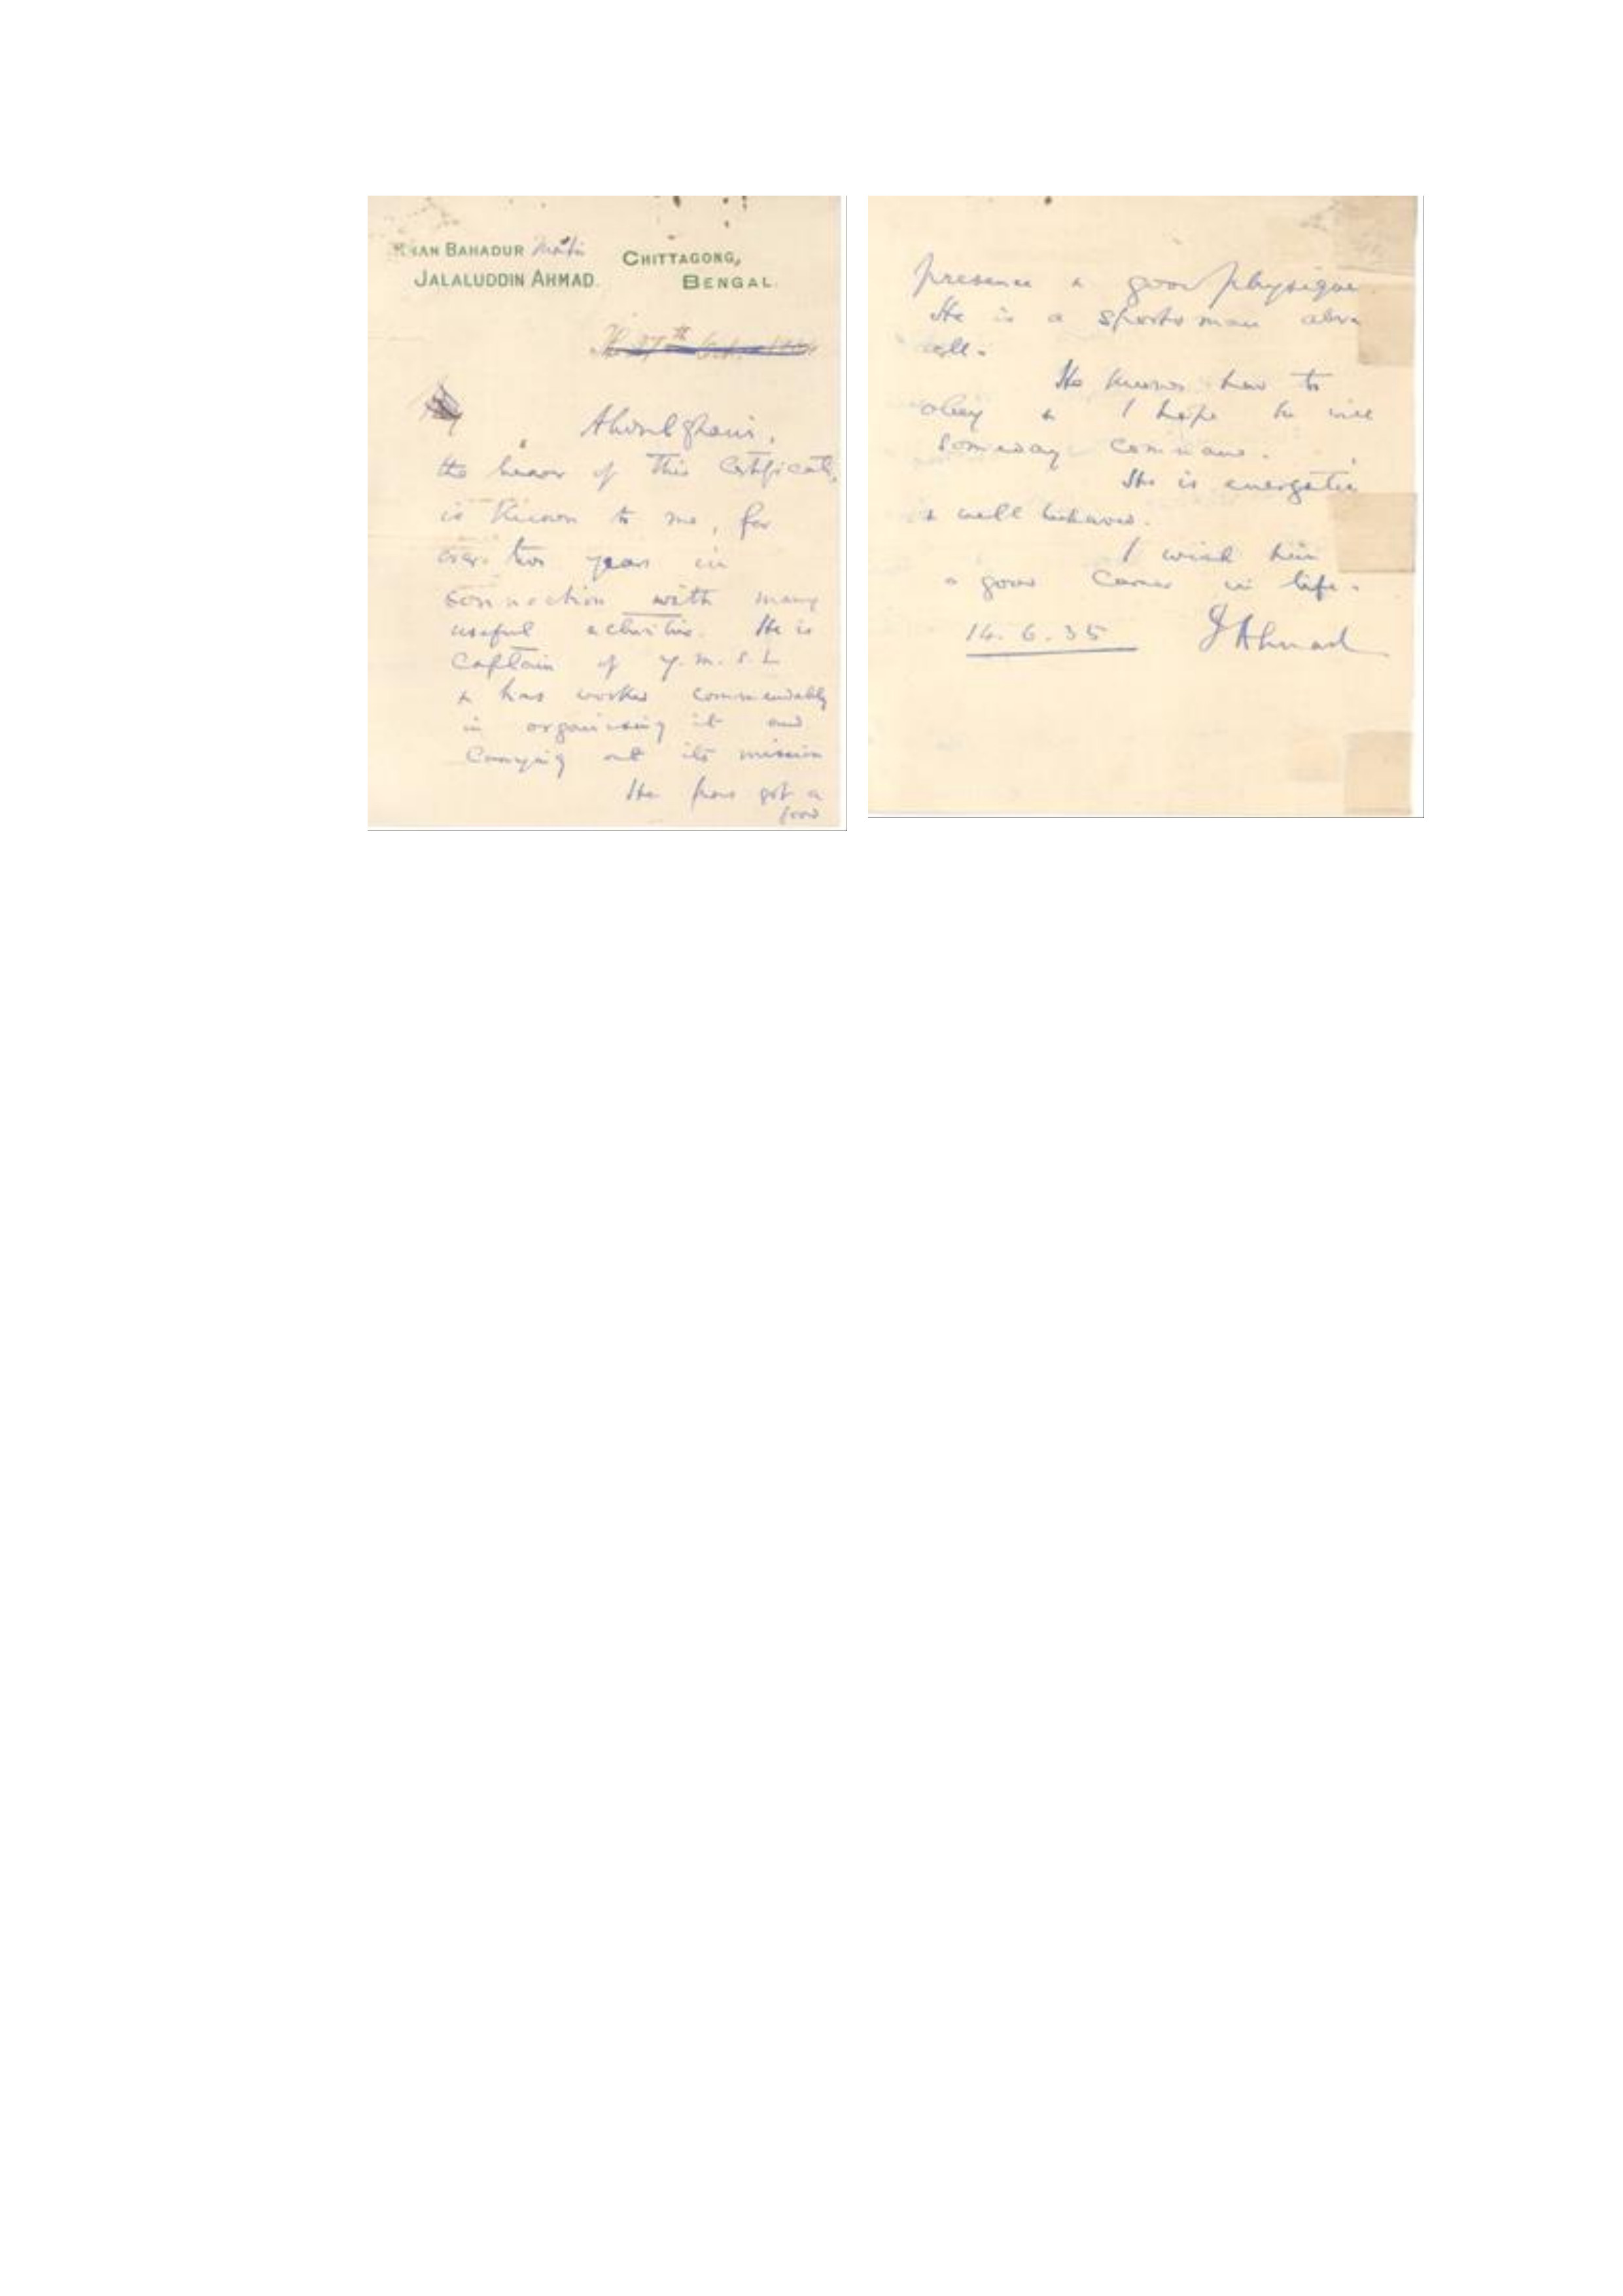 KHAN BAHADUR
JALALUDDIN AHMAD.
CHITTAGONG,
BENGAL.
Abdul Ghani,
the bearer of this Certificate,
is known to me, for
over two years in
connection with many
useful activities. He is
Captain of Y.M.S.L
& has worked commendably
in organising it and
Carrying out its mission
He has got a
good
presence & good physique.
He is a sportsman above
all.
He knows how to
obey & I hope he will
someday command.
He is energetic
& well behaved.
I wish him
a good Career in life.
14.6.35
J Ahmad